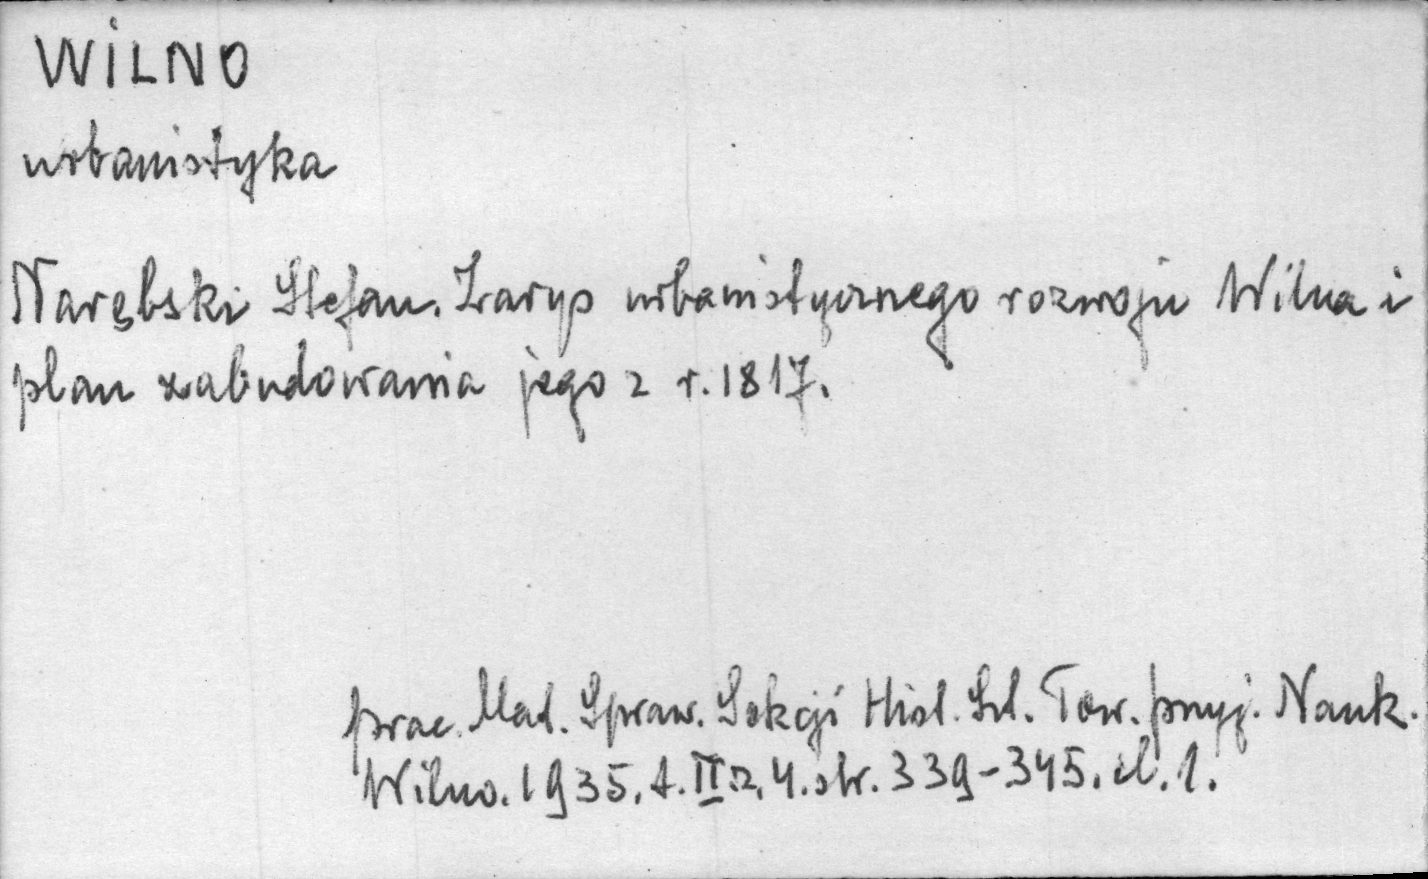 WILNO
urbanistyka
Narębski Stefan. Zarys urbanistycznego rozwoju Wilna i
plan zabudowania jego z r. 1817.
prac. Mat. Spraw. Sekcji Hist. Szt. Tow. przyj. Nauk.
Wilno. 1935. t. II. z. 4. str. 339-345. il. 1.